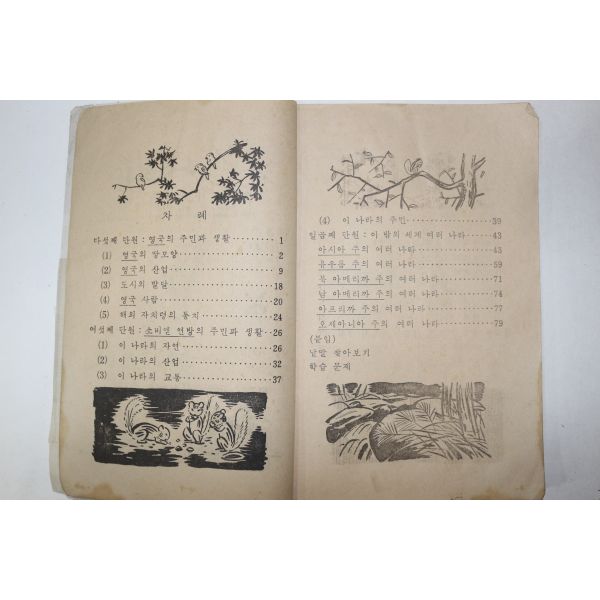 차 례
다섯째 단원 : 영국의 주민과 생활 ········ 1
(1) 영국의 땅모양 ········ 2
(2) 영국의 산업 ········ 9
(3) 도시의 발달 ········ 18
(4) 영국 사람 ········ 20
(5) 해외 자치령의 통치 ········ 24
여섯째 단원 : 소비엩 연방의 주민과 생활 ·· 26
(1) 이 나라의 자연 ········ 26
(2) 이 나라의 산업 ········ 32
(3) 이 나라의 교통 ········ 37
(4) 이 나라의 주민 ········ 39
일곱째 단원 : 이 밖의 세계 여러 나라 ········ 43
아시아 주의 여러 나라 ········ 43
유우롭 주의 여러 나라 ········ 59
북 아메리까 주의 여러 나라 ········ 71
남 아메리까 주의 여러 나라 ········ 74
아프리까 주의 여러 나라 ········ 77
오세아니아 주의 여러 나라 ········ 79
(붙임)
낱말 찾아보기
학습 문제